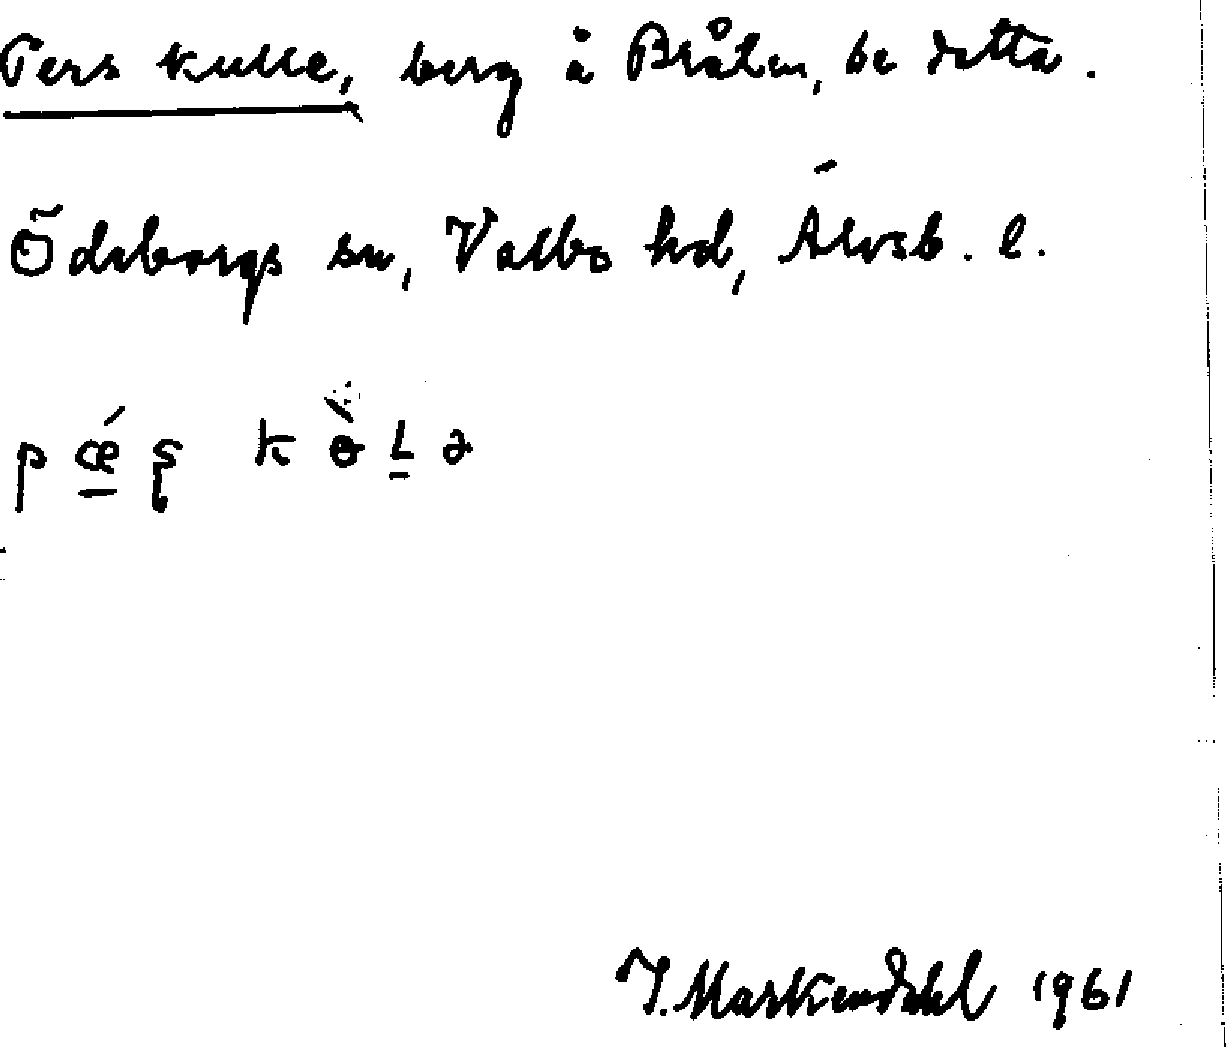 Pers kulle, berg å Bråten, se detta.
Ödeborgs sn, Valbo hd, Älvsb. l.
pǽʂ kɵ̀Lə
J. Markendahl 1961